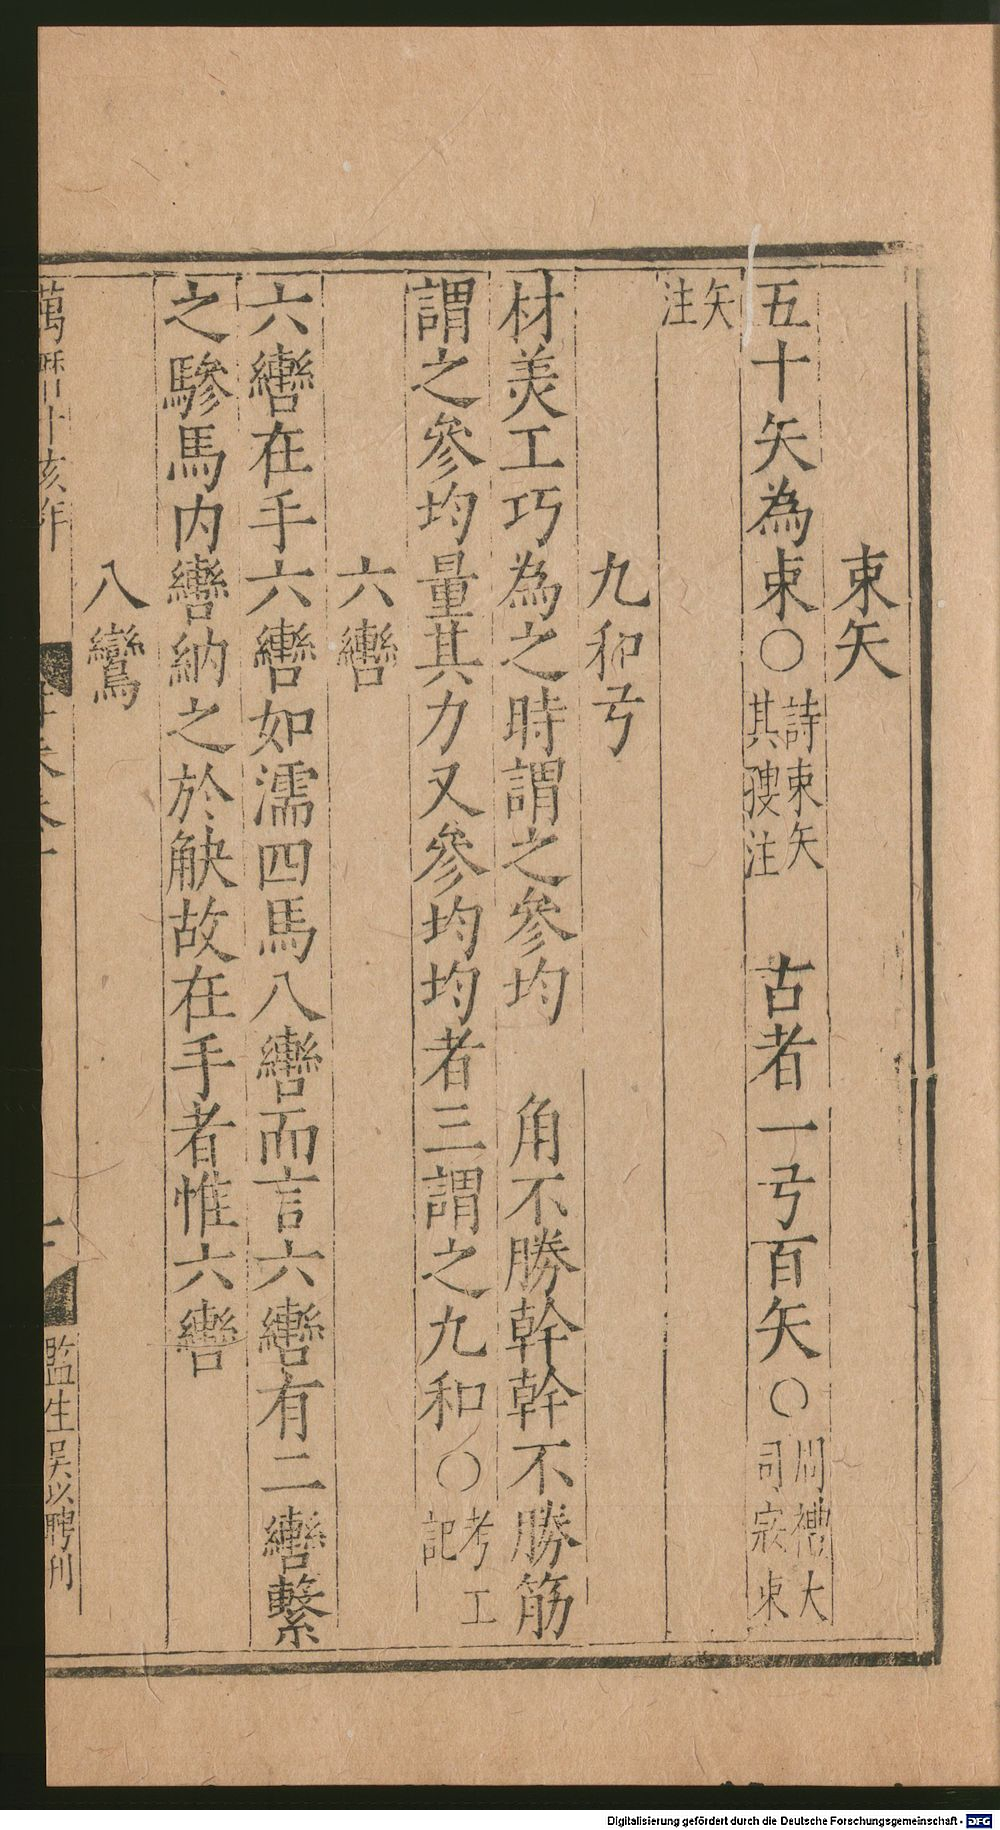 束矢
五十矢為束○詩束矢其搜注　古者一弓百矢○周禮大司寇束
矢注
九和弓
材美工巧為之時謂之參均　角不勝幹幹不勝筋
謂之參均量其力又參均均者三謂之九和○考工記
六轡
六轡在手六轡如濡四馬八轡而言六轡有二轡繫
之驂馬内轡納之於觖故在手者惟六轡
八鸞
萬曆丁亥年
監生吳以聘刊
Digitalisierung gefördert durch die Deutsche Forschungsgemeinschaft - DFG